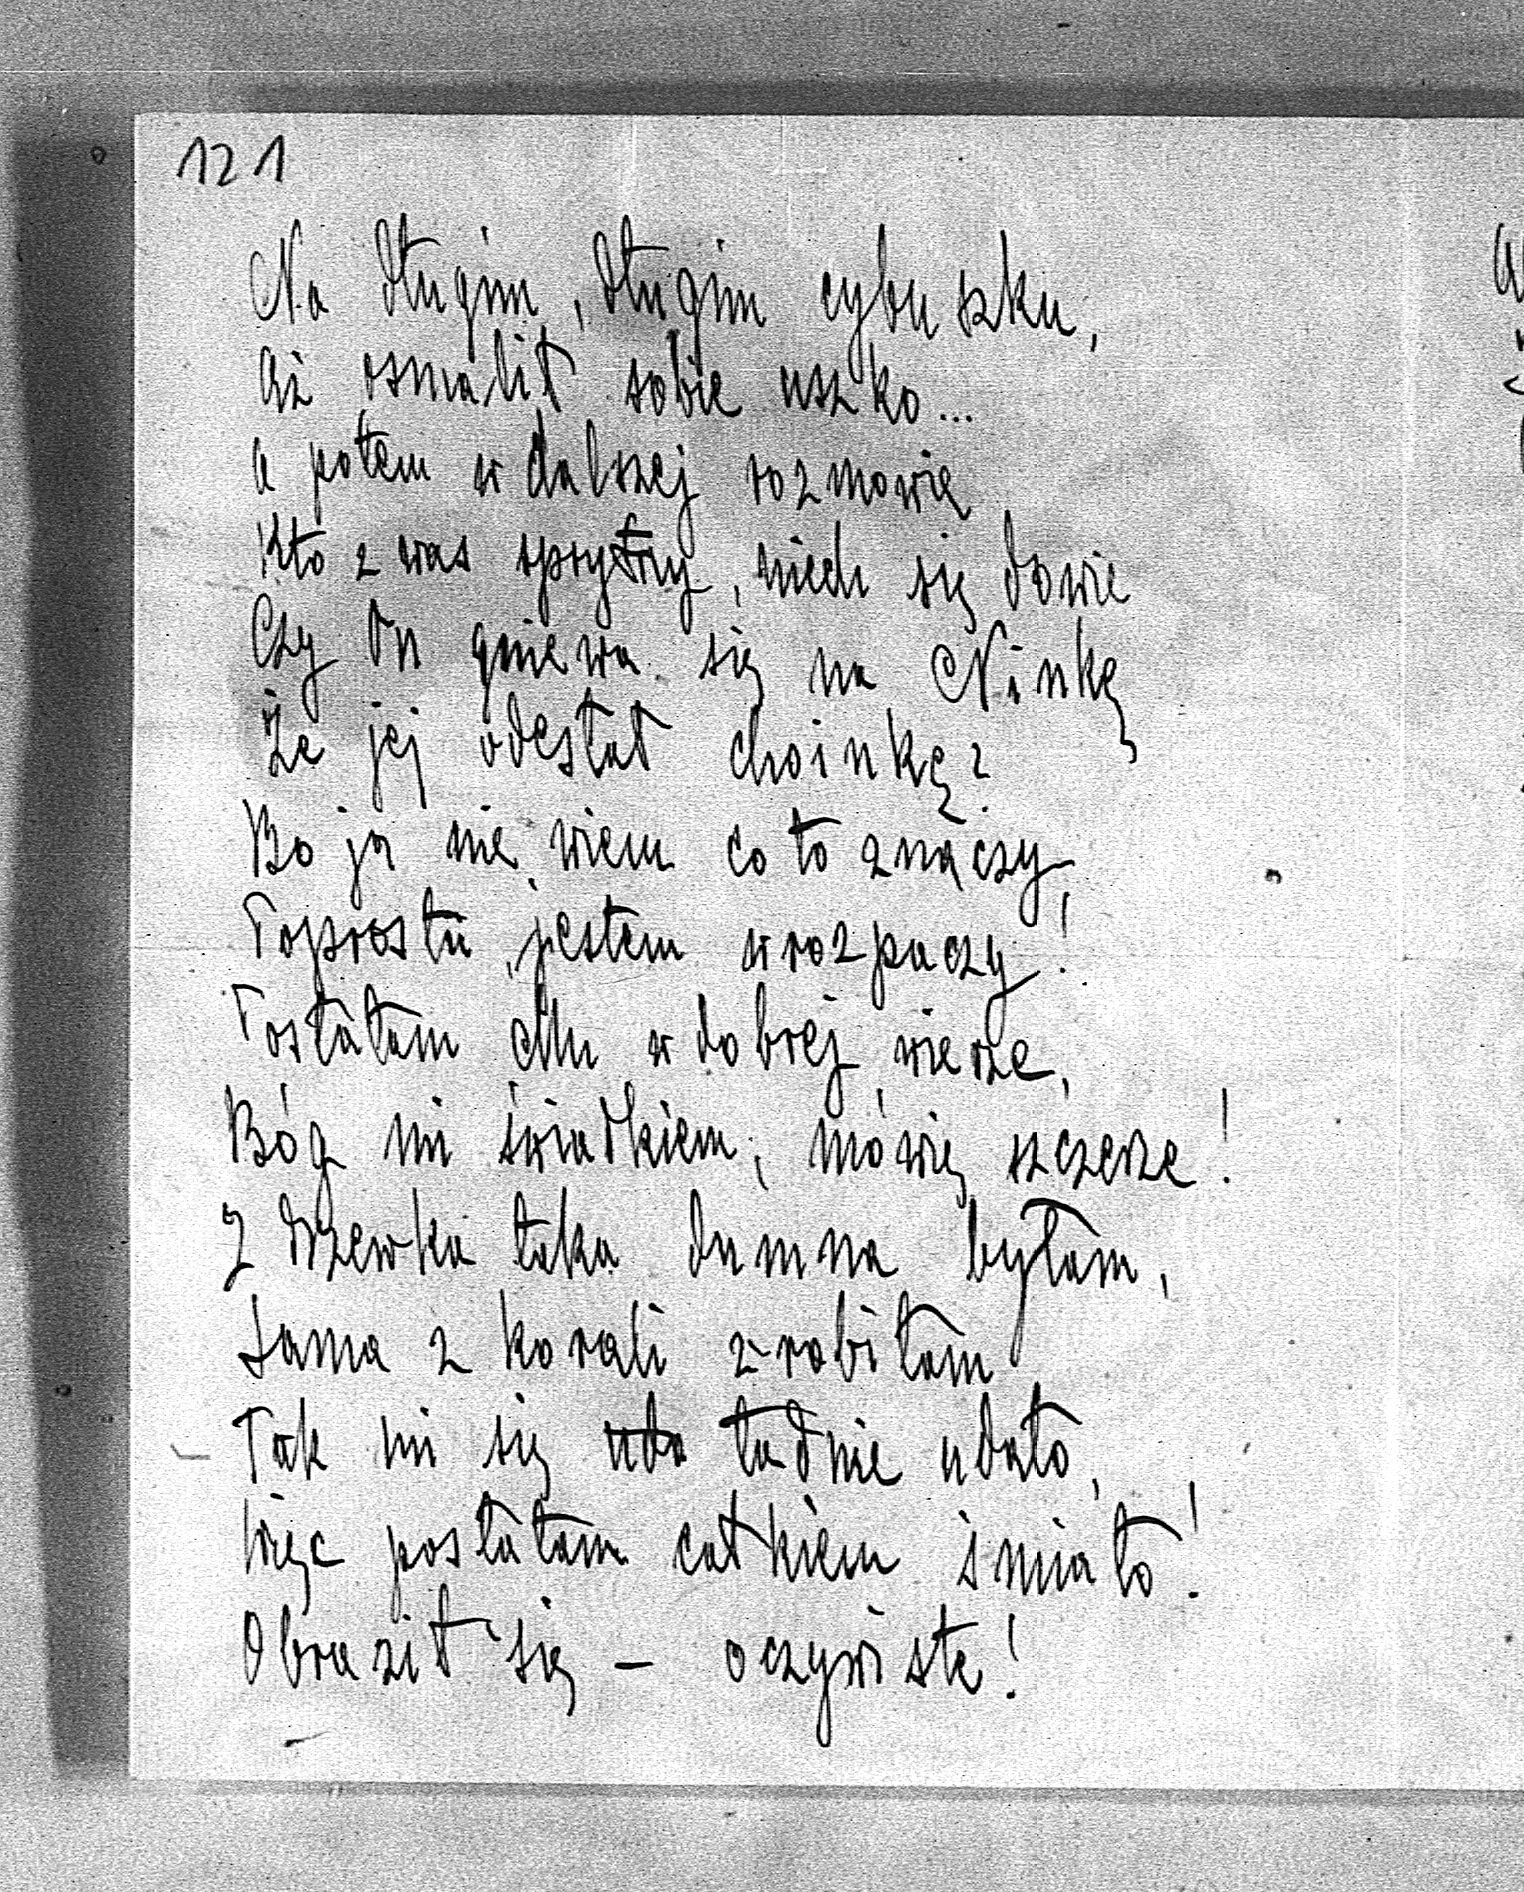 121
Na długim, długim cybuszku,
Aż osmalił sobie uszko...
A potem w dalszej rozmowie
Kto z was sprytny, niech się dowie
Czy On gniewa się na Ninkę
Że jej odesłał choinkę?
Bo ja nie wiem co to znaczy,
Poprostu jestem w rozpaczy!
Posłałam Mu w dobrej wierze,
Bóg mi świadkiem, mówię szczerze!
Z drzewka taka dumna byłam,
Sama z korali zrobiłam
Tak mi się uda ładnie udało,
Więc posłałam całkiem śmiało!
Obraził się – oczywiste!